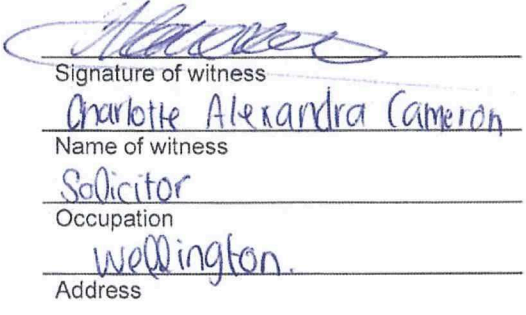 Signature of witness
Charlotte Alexandra Cameron
Name of witness
Solicitor
Occupation
Wellington.
Address